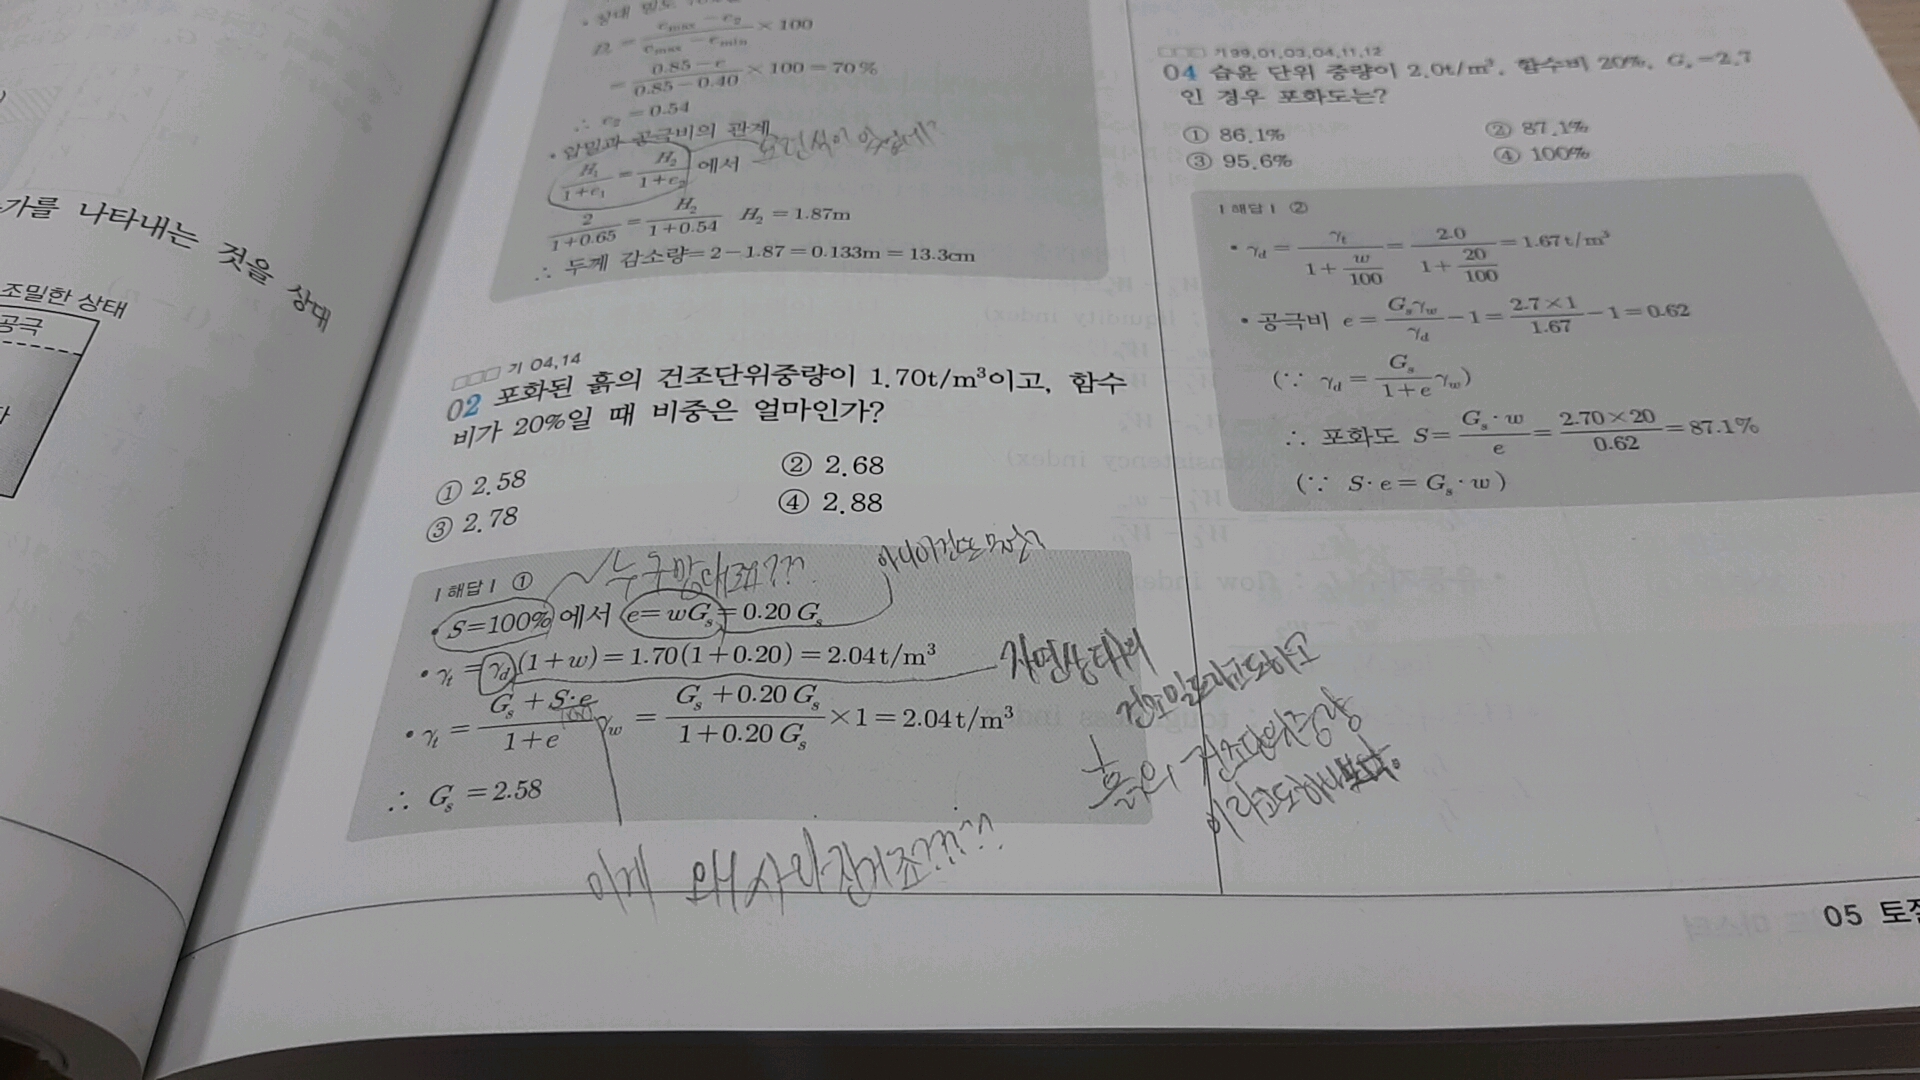 가를 나타내는 것을 상대
조밀한 상태
공극
D_r = (e_max − e_2)/(e_max − e_min) × 100
= (0.85 − e)/(0.85 − 0.40) × 100 = 70%
∴ e₂ = 0.54
• 압밀과 공극비의 관계
H₁/(1+e₁) = H₂/(1+e₂) 에서
2/(1+0.65) = H₂/(1+0.54) H₂ = 1.87m
∴ 두께 감소량 = 2 − 1.87 = 0.133m = 13.3cm
□□□ 기 04,14
02 포화된 흙의 건조단위중량이 1.70t/m³이고, 함수
비가 20%일 때 비중은 얼마인가?
① 2.58 ② 2.68
③ 2.78 ④ 2.88
누구맘대로??
아니이건또뭐죠?
| 해답 | ①
• S=100% 에서 e = wG_s = 0.20 G_s
• γ_t = γ_d(1+w) = 1.70(1+0.20) = 2.04t/m³
자연상태의
건조밀도라고도하고
• γ_t = (G_s + S·e/100)/(1+e) γ_w = (G_s + 0.20 G_s)/(1 + 0.20 G_s) × 1 = 2.04t/m³
흙의 건조단위중량
이라고도하나보다.
∴ G_s = 2.58
이게 왜 사라진거죠????
□□□ 기99,01,03,04,11,12
04 습윤 단위 중량이 2.0t/m³, 함수비 20%, G_s=2.7
인 경우 포화도는?
① 86.1% ② 87.1%
③ 95.6% ④ 100%
| 해답 | ②
• γ_d = γ_t/(1 + w/100) = 2.0/(1 + 20/100) = 1.67t/m³
• 공극비 e = G_sγ_w/γ_d − 1 = (2.7×1)/1.67 − 1 = 0.62
(∵ γ_d = G_s/(1+e) γ_w)
∴ 포화도 S = G_s·w/e = (2.70×20)/0.62 = 87.1%
(∵ S·e = G_s·w)
05 토질